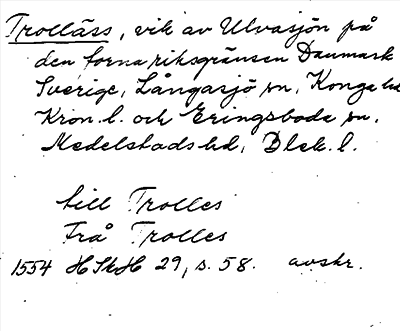 Trolläss, vik av Ulvasjön på
den forna riksgränsen Danmark
Sverige, Långasjö sn, Konga hd
Kron. l. och Eringsboda sn,
Medelstads hd, Blek. l.
till Trolles
Frå Trolles
1554 HSkH 29, s. 58. avskr.